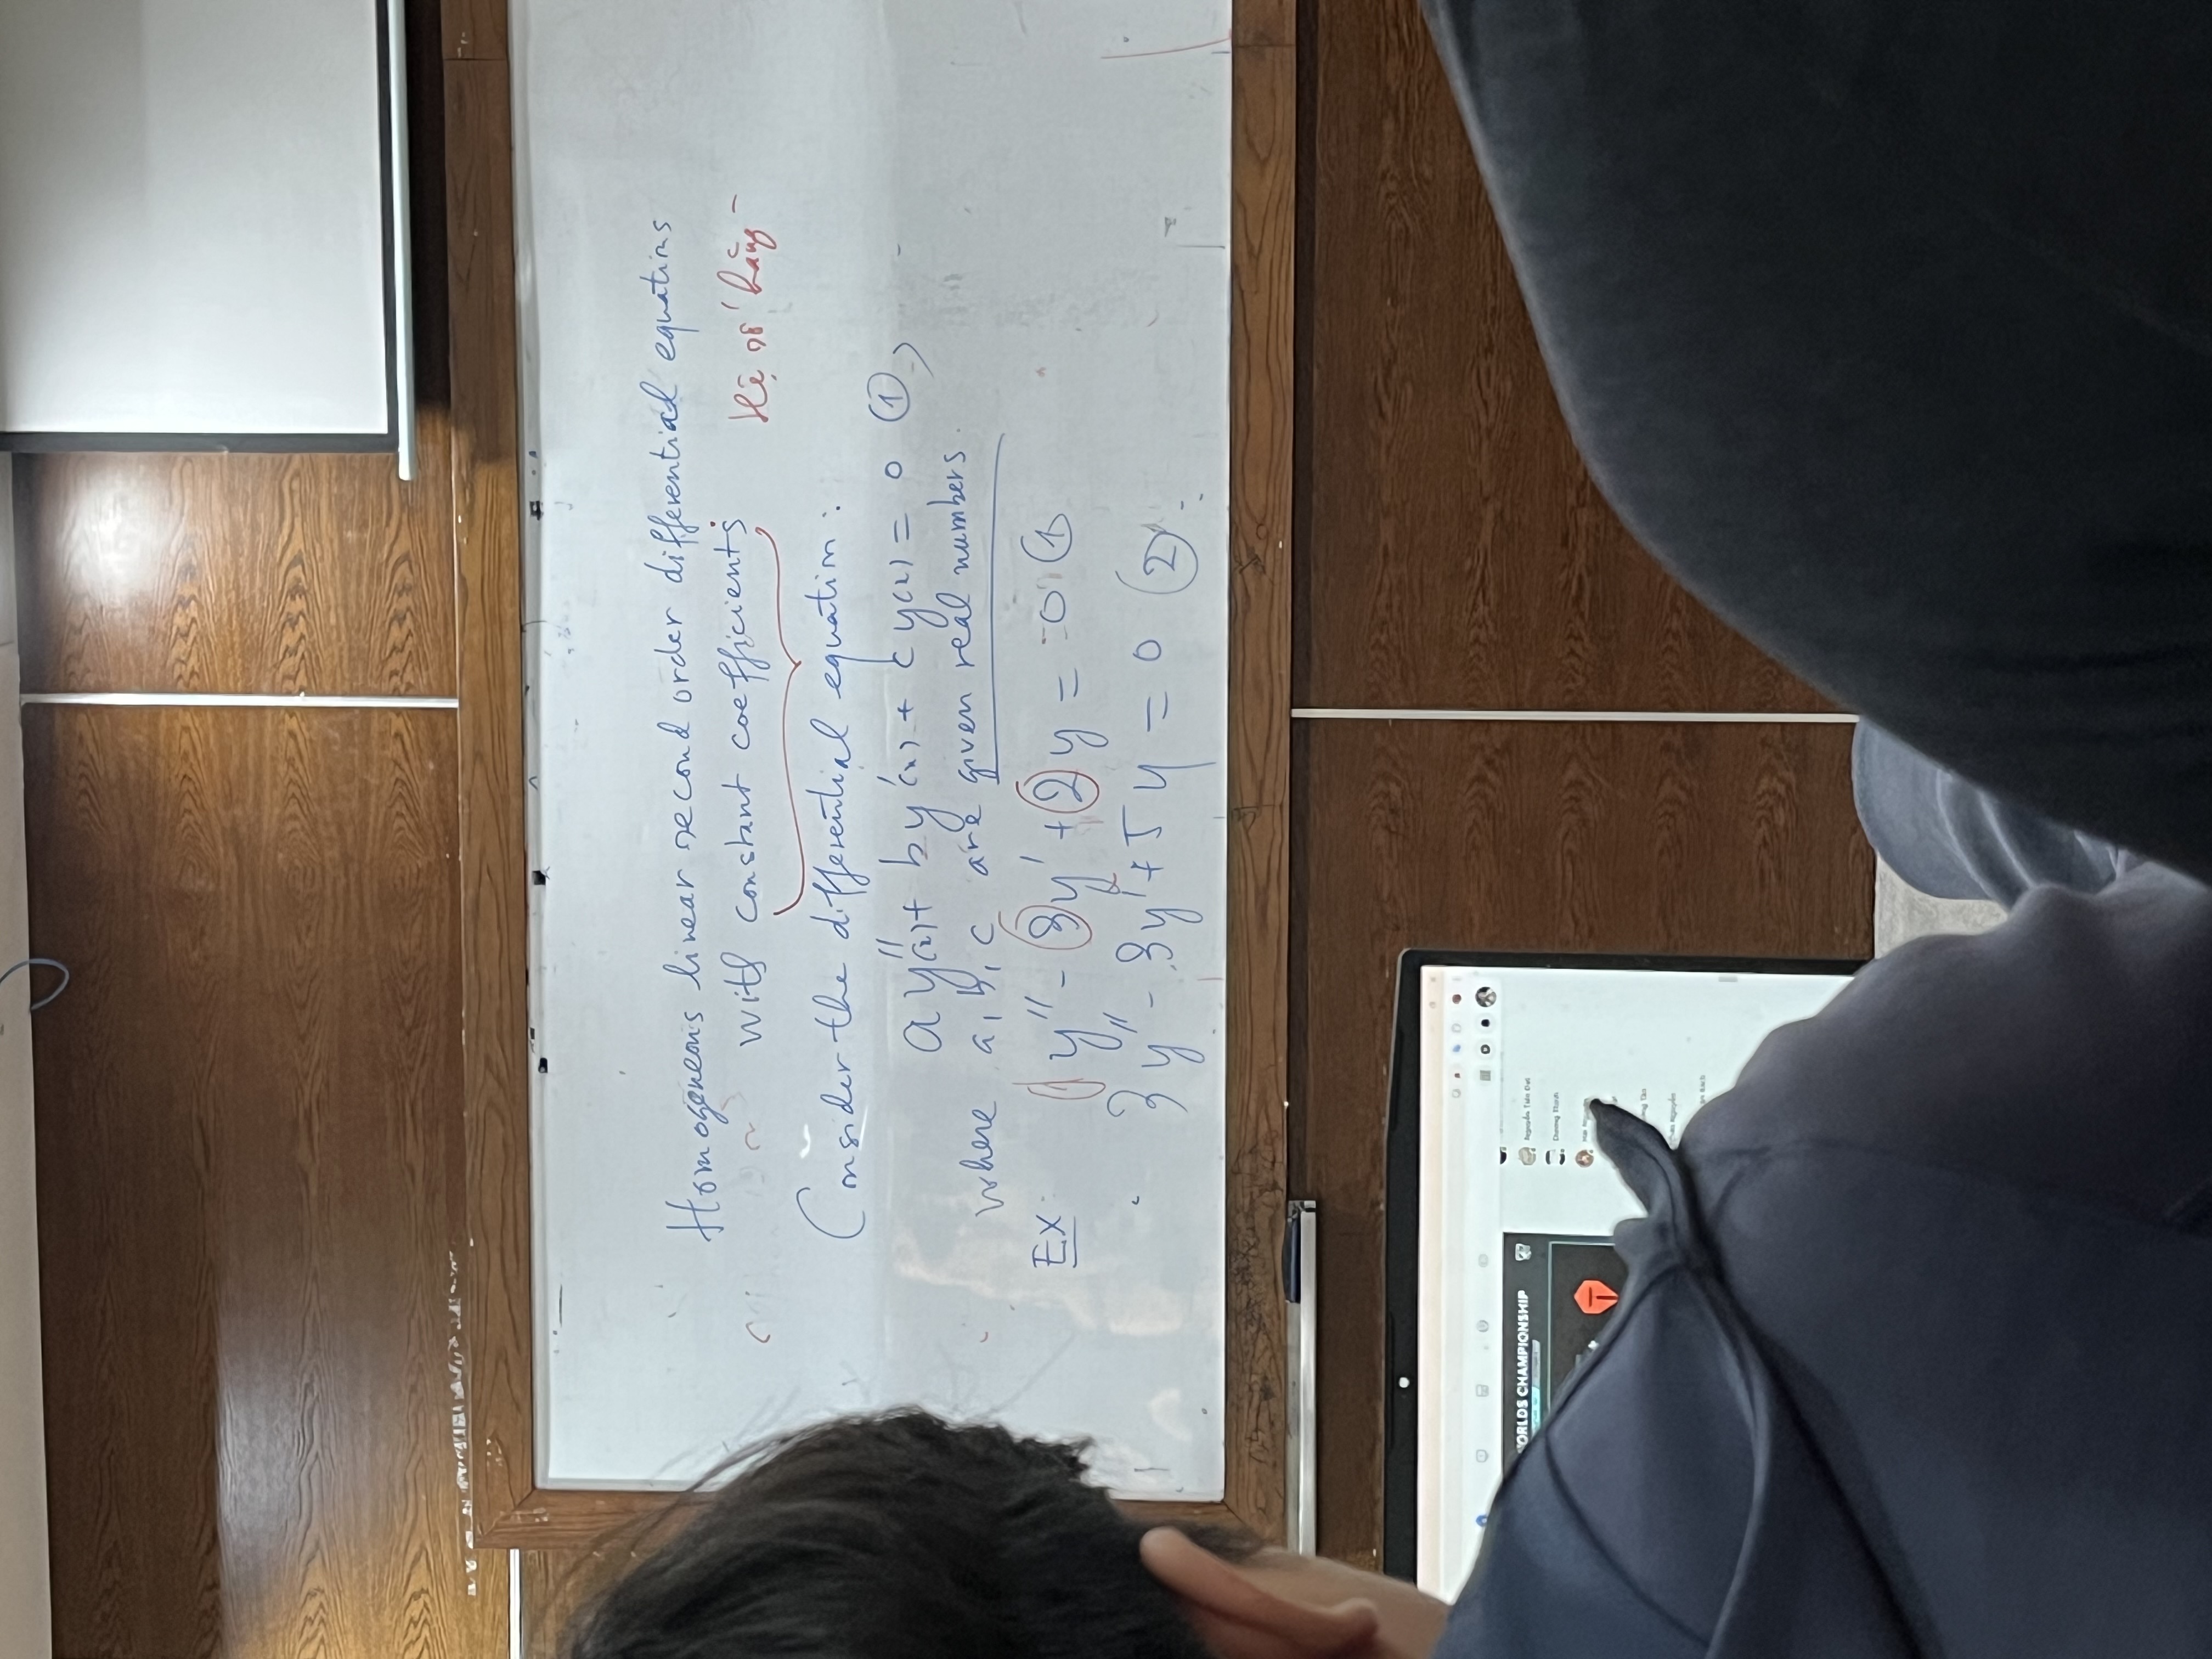 Homogeneous linear second order differential equations
with constant coefficients
Hệ số hằng
Consider the differential equation:
a y''(x) + b y'(x) + c y(x) = 0 ①,
where a, b, c are given real numbers.
EX 1 y'' - 3y' + 2y = 0 ①
3y'' - 3y' + 5y = 0 ②
WORLDS CHAMPIONSHIP
Nguyễn Tiến Đạt
Dương Thành
Nguyễn